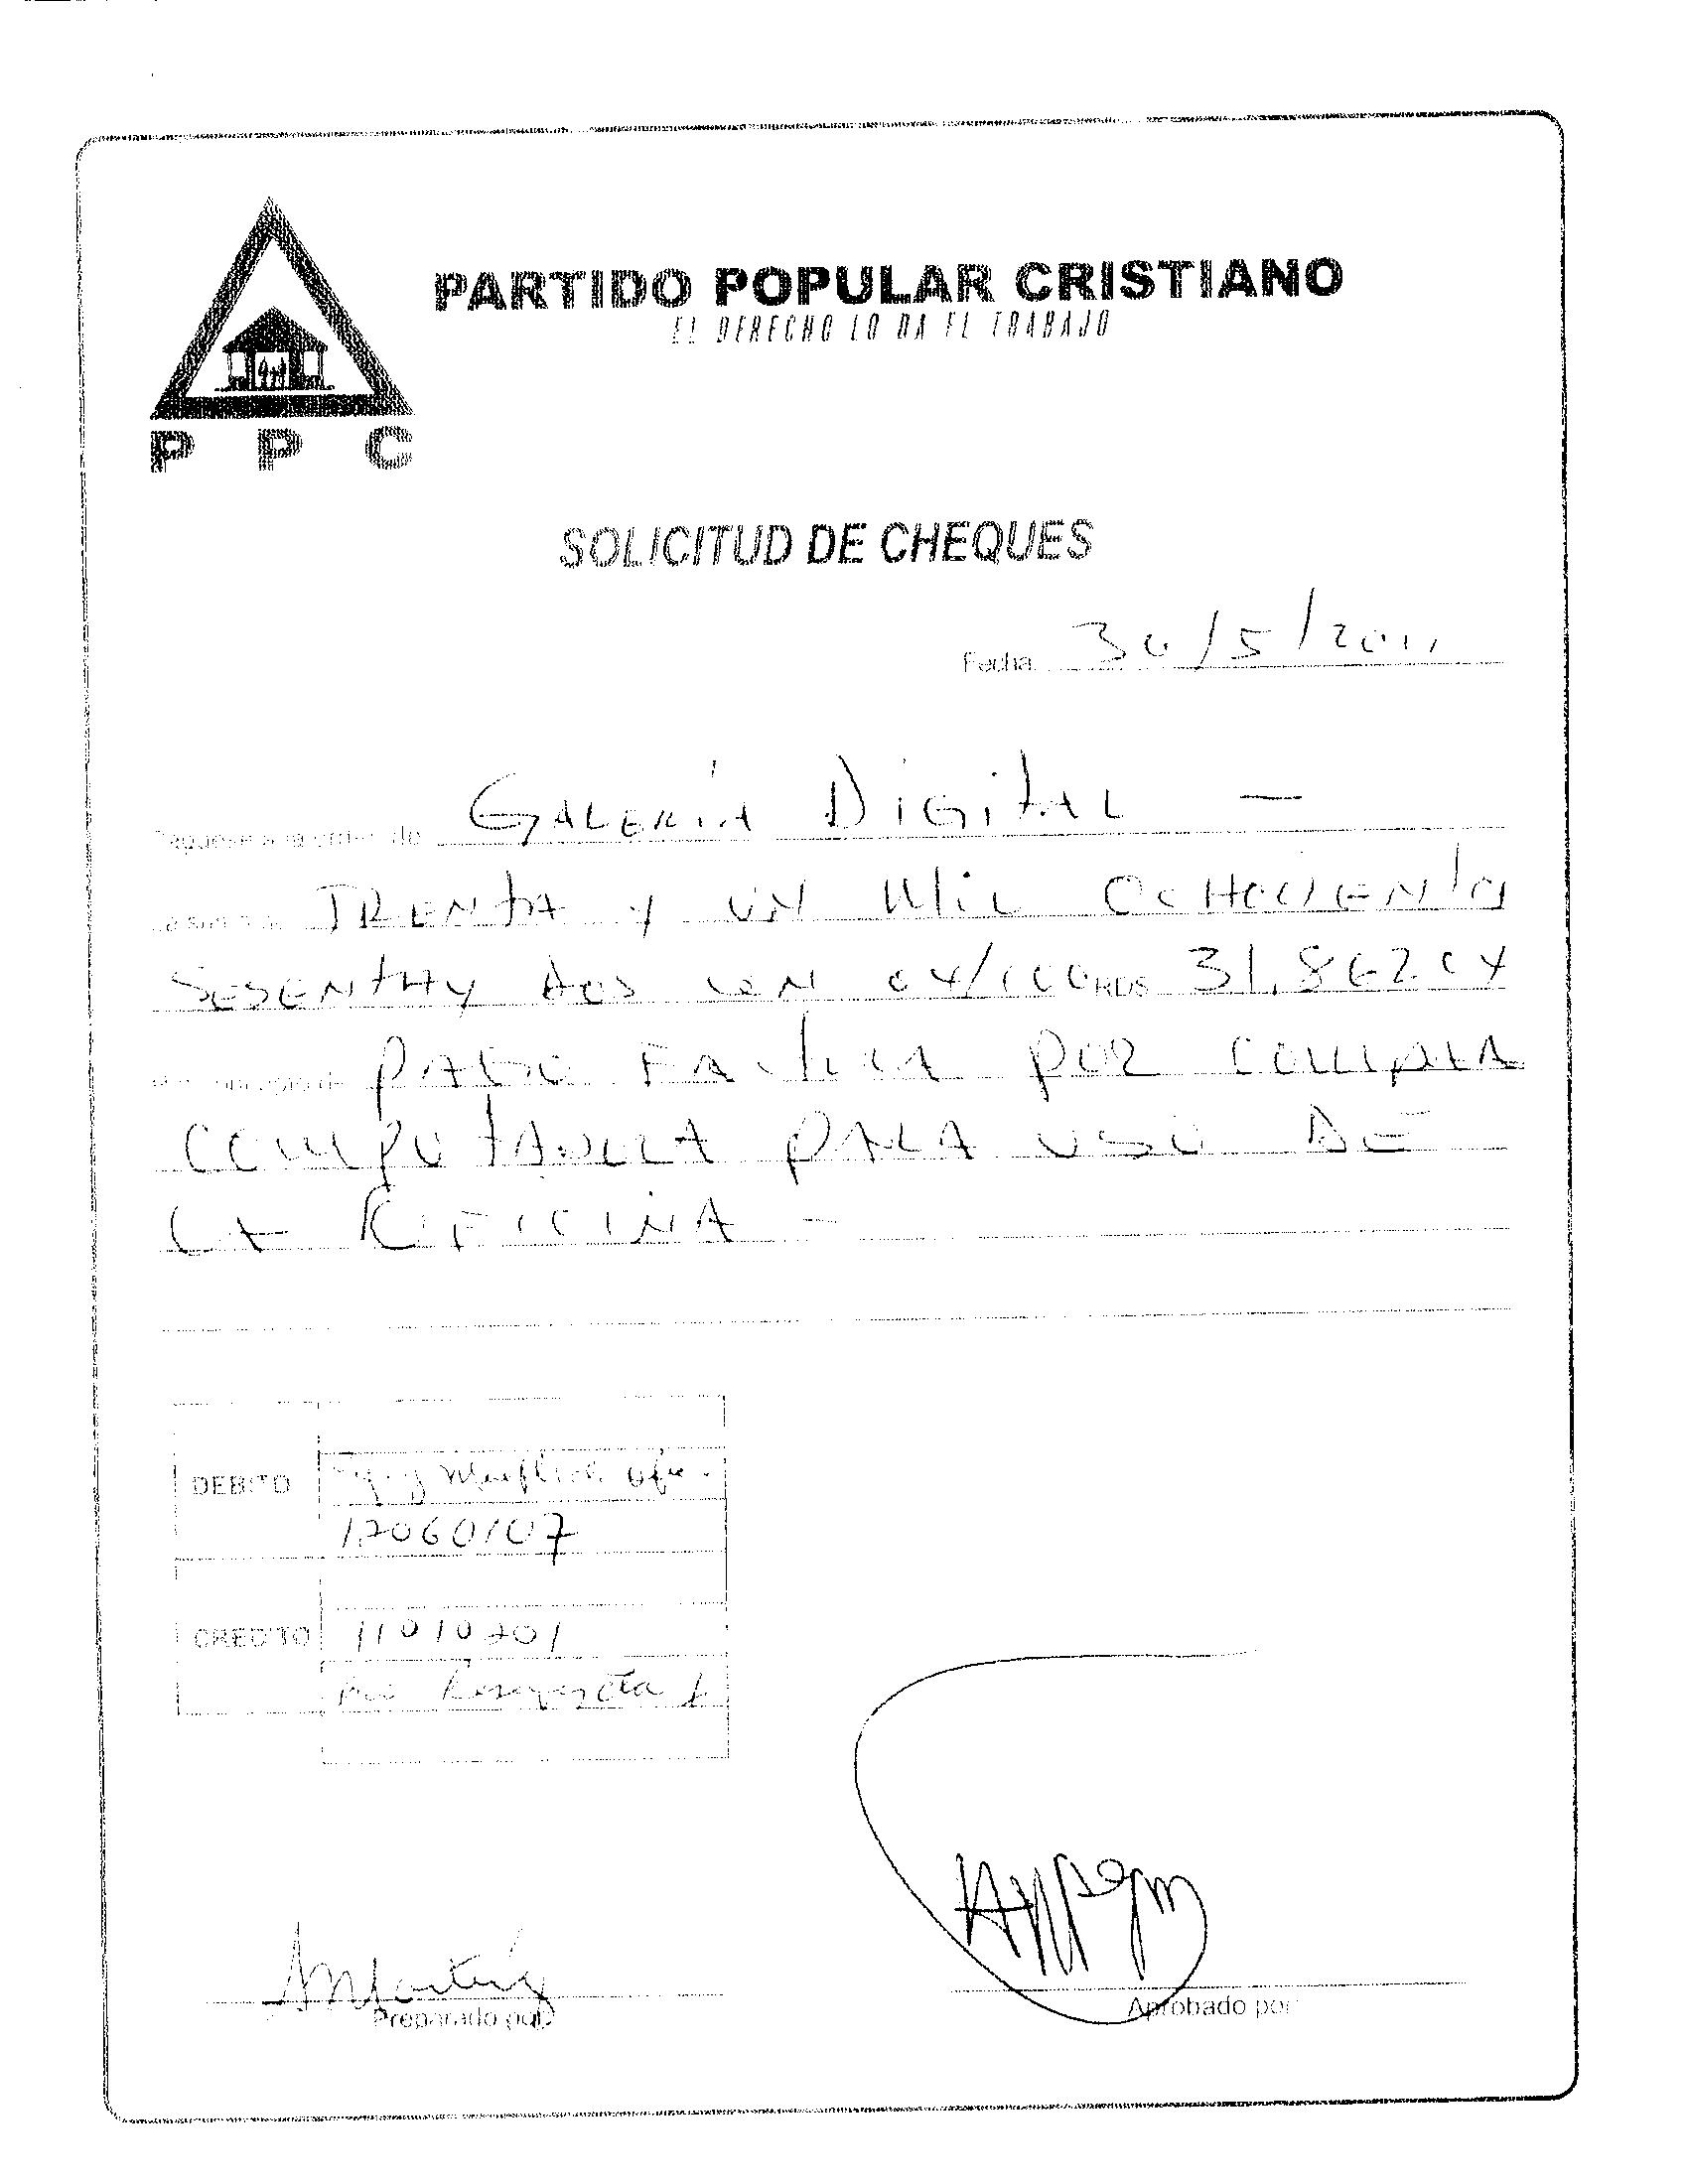 PARTIDO POPULAR CRISTIANO
EL DERECHO LO DA EL TRABAJO
P P C
SOLICITUD DE CHEQUES
Fecha 30/5/2011
Páguese a la orden de GALERÍA DIGITAL —
La suma de TRENTA Y UN MIL OCHOCIENTOS
SESENTA Y DOS CON 04/100 RD$ 31,862.04
PAGO FACTURA POR COMPRA
COMPUTADORA PARA USO DE
LA OFICINA —
DEBITO
12060107
CREDITO 11010201
Preparado por
Aprobado por